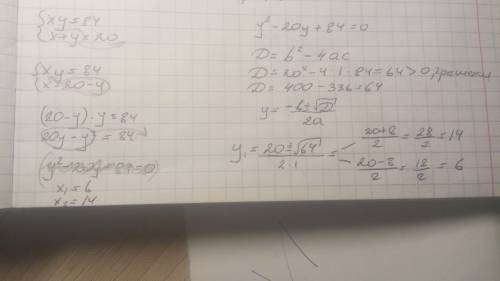 {xy=84
{x+y=20
{xy=84
{x=20-y)
(20-y)·y=84
20y-y²=84
x₁=6
x₂=14
y²-20y+84=0
D=b²-4ac
D=20²-4·1·84=64>0, 2 решения
D=400-336=64
y=\frac{-b±√D}{2a}
y₁=\frac{20±√64}{2·1}=
\frac{20+8}{2}=\frac{28}{2}=14
\frac{20-8}{2}=\frac{12}{2}=6